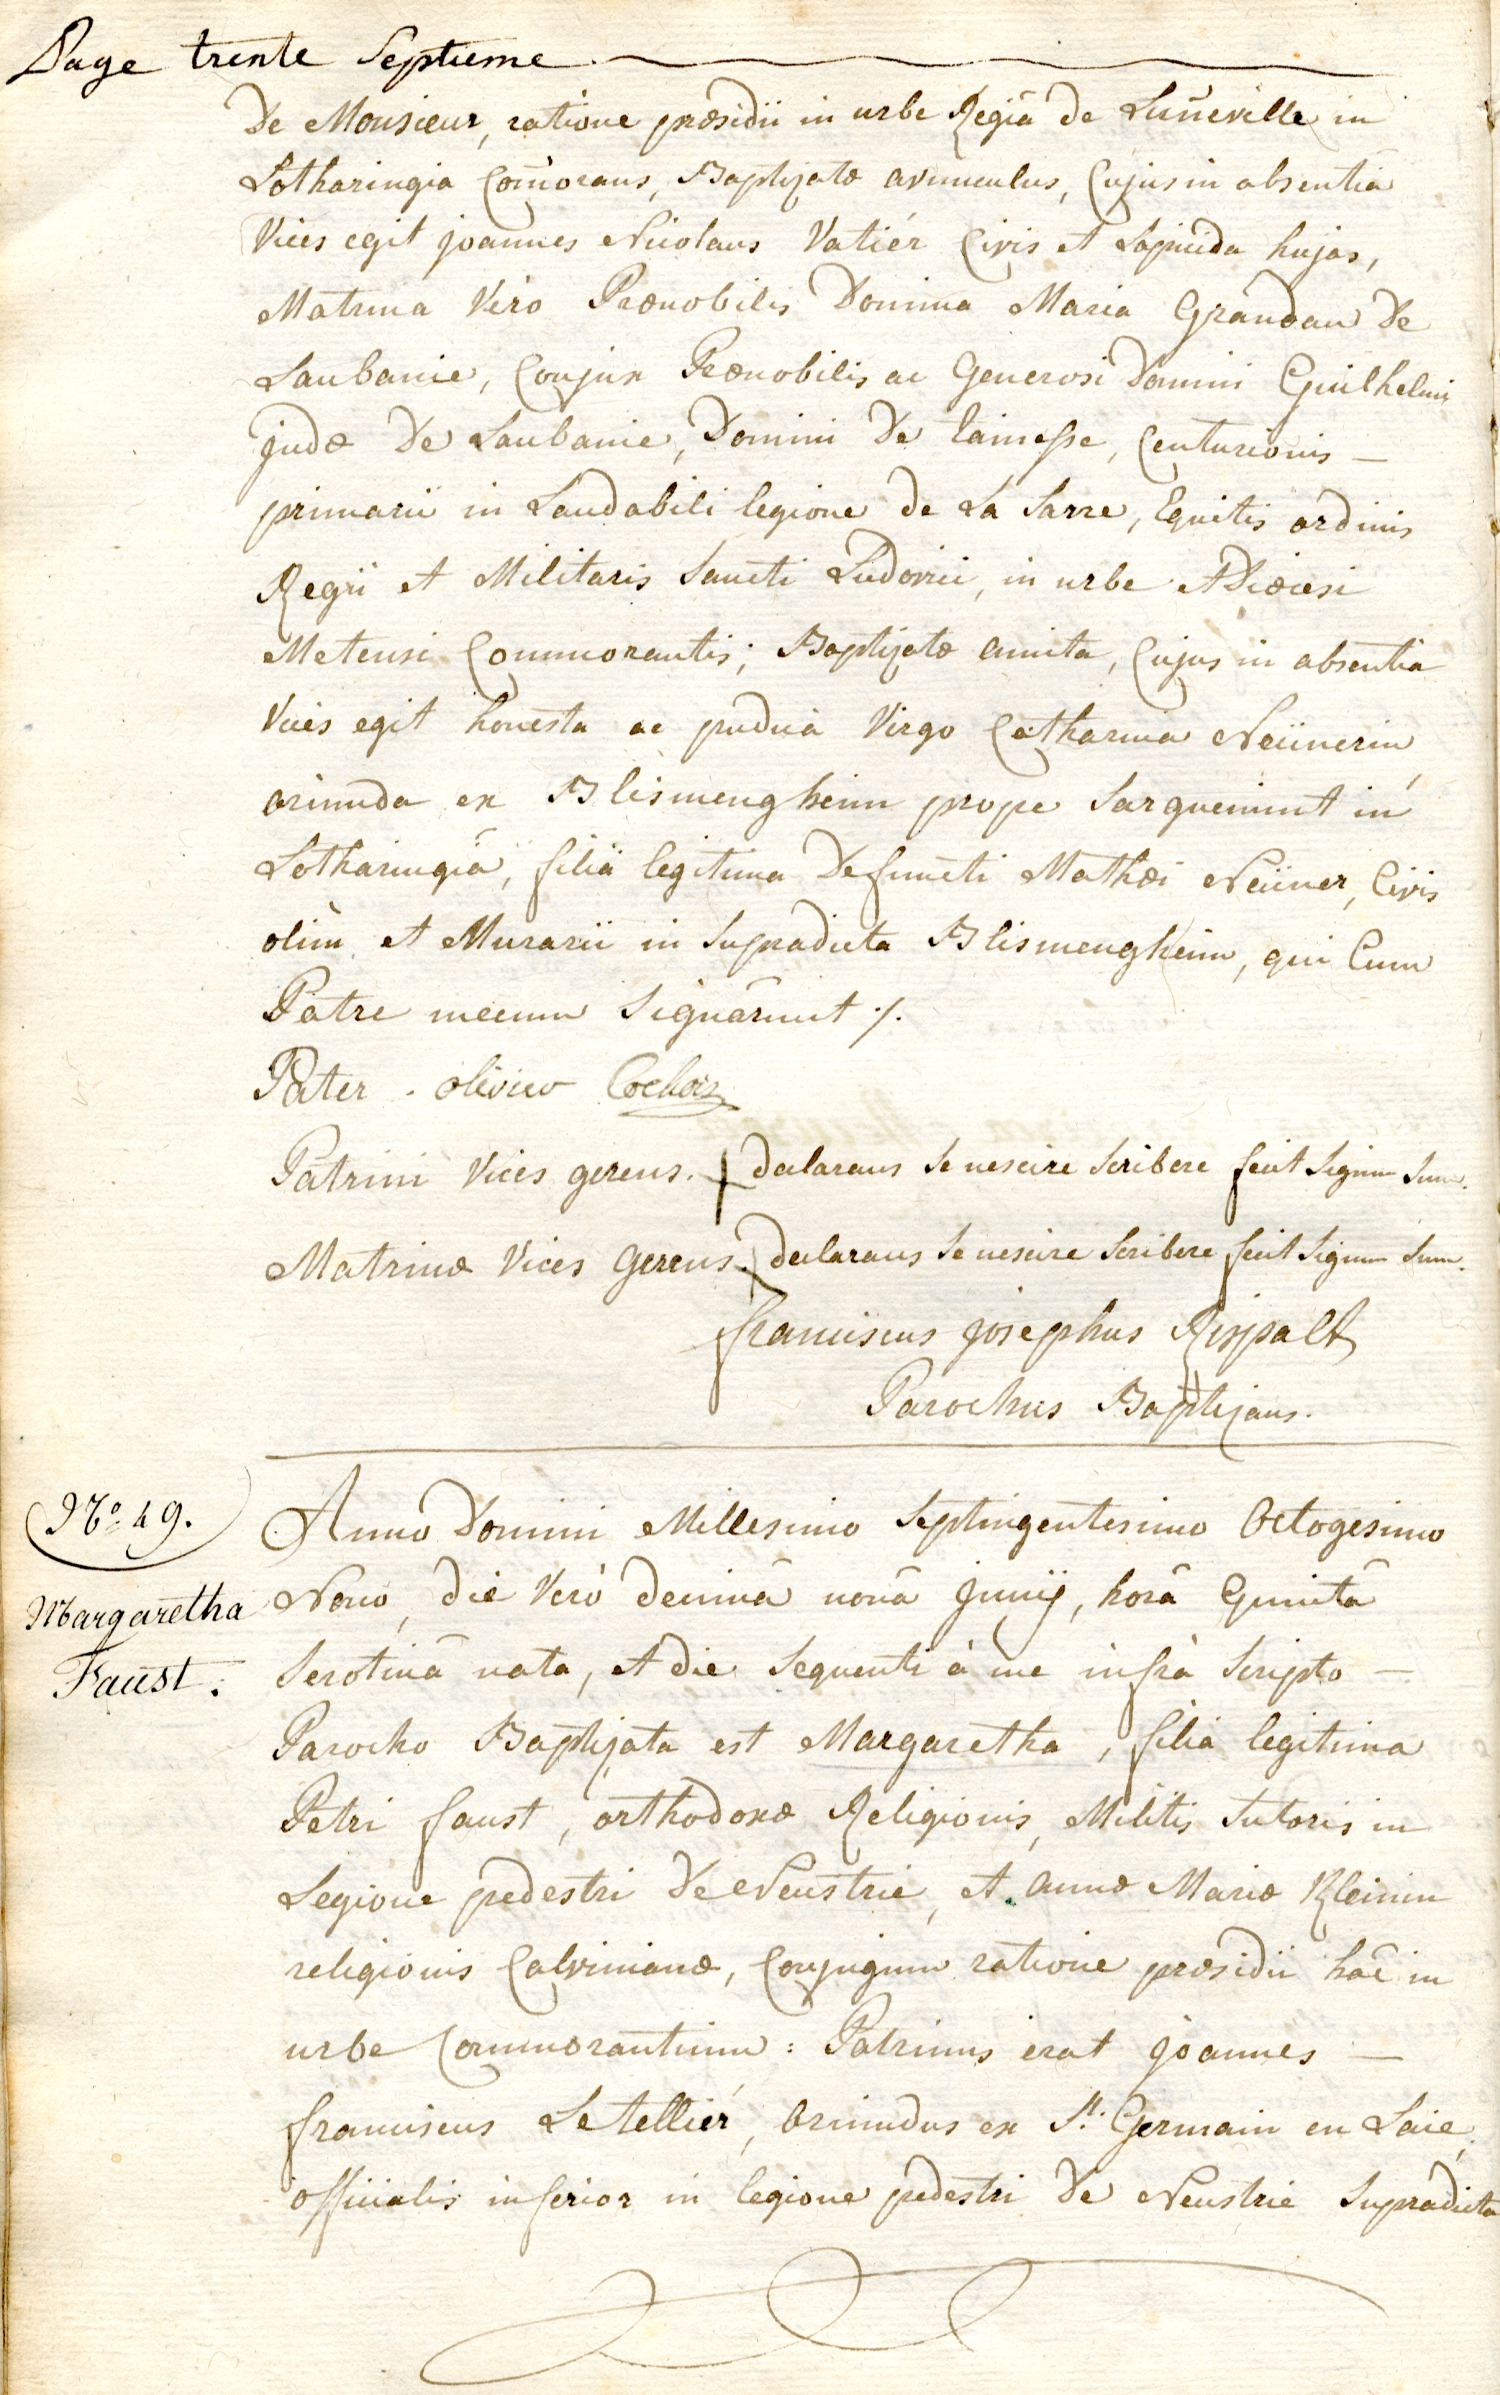 Page trente Septieme
De Monsieur, ratione præsidii in urbe Regiâ de Luñeville in
Lotharingia Com̃orans, Baptizatæ avunculus, Cujus in absentiâ
Vices egit joannes Nicolaus Vatiér Civis et Lapicida hujas,
Matrina Verò Prænobilis Domina Maria Grandau De
Laubanie, Conjux Prænobilis ac Generosi Domini Guilhelmi
judæ De Laubanie, Domini De Eaimesse, Centurionis —
primarii in Laudabili legione de La Sarre, Equitis ordinis
Regii et Militaris Sancti Ludovici, in urbe et Diœcesi
Metensi Commorantis; Baptizatæ amita, Cujus in absentiâ
Vices egit honesta ac pudica Virgo Catharina Neüinerin
oriunda ex Blismengheim prope Sarguemint in
Lotharingiâ, filia legitima Defuncti Mathæi Neüiner, Civis
olim et Murarii in Supradicta Blismengheim, qui Cum
Patre mecum Signârunt ·/.
Pater . olivier Cochois
Patrini Vices gerens. + declarans Se nescire Scribere fecit Signum Suum.
Matrinæ Vices Gerens. + declarans Se nescire Scribere fecit Signum Suum.
franciscus josephus Rispalt
Parochus Baptizans.
No. 49.
Margaretha
Faust.
Anno Domini Millesimo Septingentesimo Octogesimo
Nono, die Verò decimâ nonâ Junij, horâ Quintâ
Serotinâ nata, et die Sequenti à me infrà Scripto —
Parocho Baptizata est Margaretha, filia legitima
Petri faust, orthodoxæ Religionis, Militis Sutoris in
Legione pedestri De Neustrie, et annæ Mariæ Kleinin
religionis Calvinianæ, Conjugum ratione præsidii hâc in
urbe Commorantium: Patrinus erat joannes —
franciscus Letelliér, Oriundus ex St. Germain en Laie,
officialis inferior in legione pedestri De Neustrie Supradicta